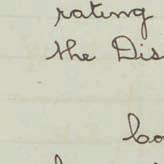 rating
the Dis